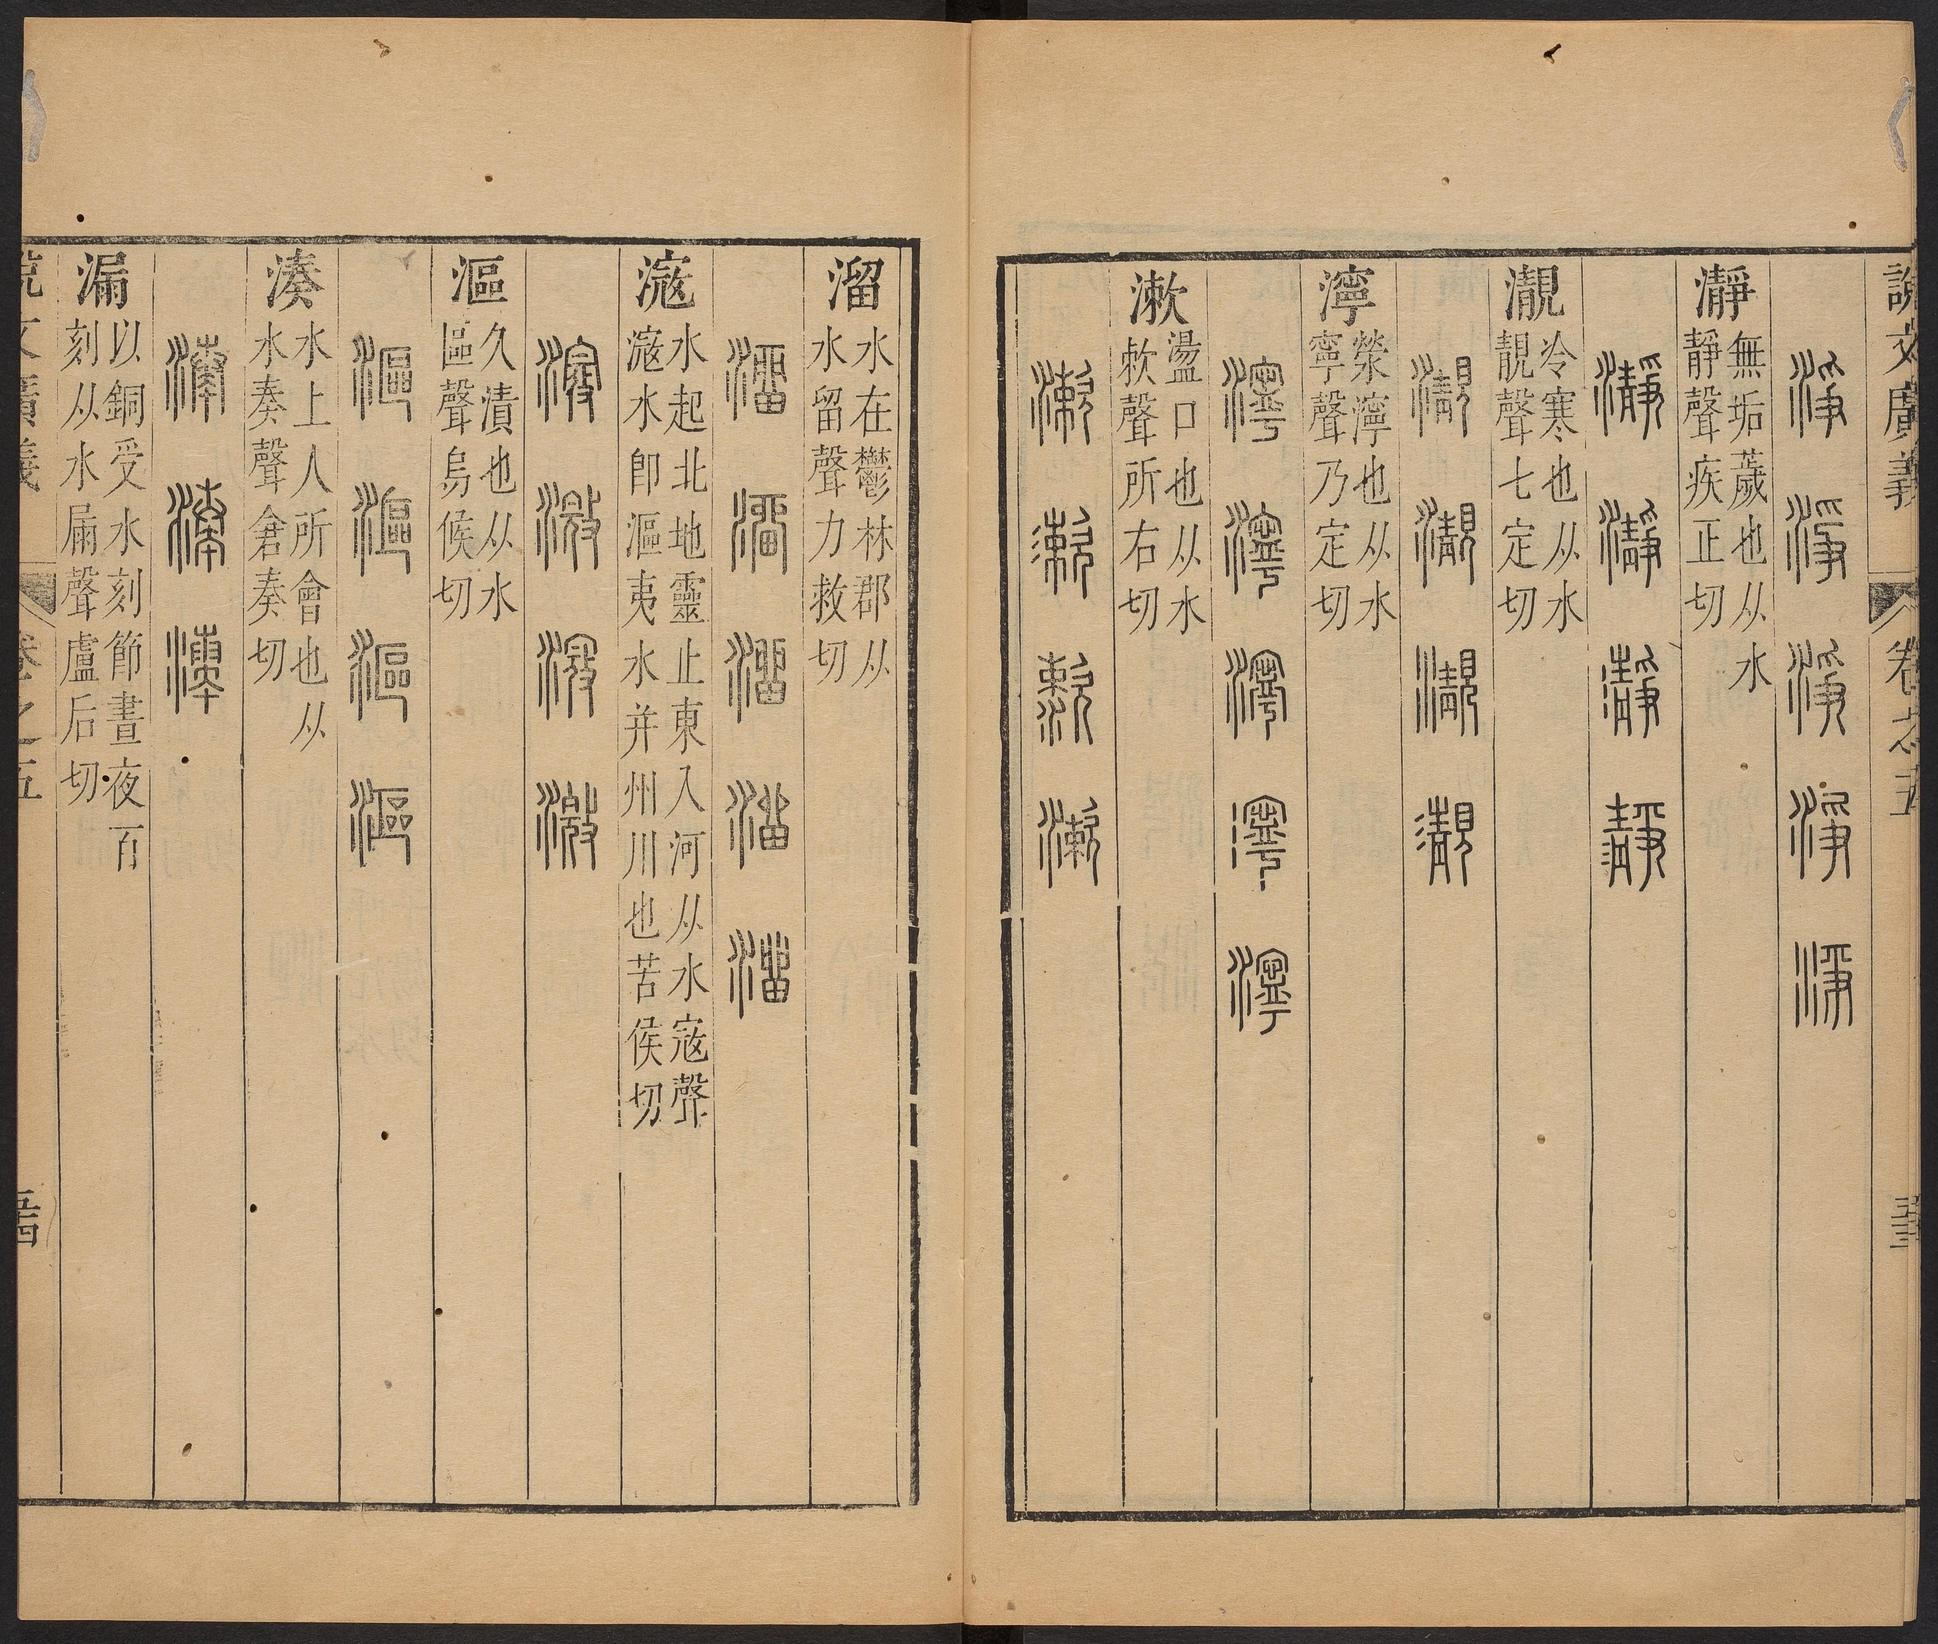 說文廣義 卷之五 五十三
淨 淨 淨 淨 淨
瀞 無垢薉也从水
靜聲疾正切
瀞 瀞 瀞 瀞
瀙 冷寒也从水
靚聲七定切
瀙 瀙 瀙 瀙
濘 滎濘也从水
寧聲乃定切
濘 濘 濘 濘 濘
漱 盪口也从水
欶聲所右切
漱 漱 漱 漱
溜 水在鬱林郡从
水留聲力救切
溜 溜 溜 溜 溜
滱 水起北地靈止東入河从水寇聲
滱水卽漚夷水并州川也苦侯切
滱 滱 滱 滱
漚 久漬也从水
區聲烏侯切
漚 漚 漚 漚
湊 水上人所會也从
水奏聲倉奏切
湊 湊 湊
漏 以銅受水刻節晝夜百
刻从水屚聲盧后切
說文廣義 卷之五 五十四